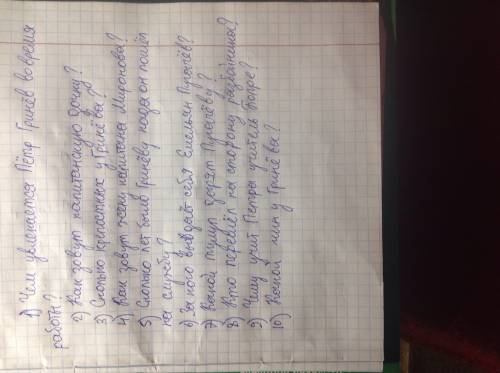 1) Чем увлекается Пётр Гринёв во время
работы?
2) Как зовут капитанскую дочку?
3) Сколько крепостных у Гринёвы?
4) Как зовут жену капитана Миронова?
5) Сколько лет было Гринёву когда он пошёл
на службу?
6) За кого выдаёт себя Емельян Пугачёв?
7) Какой тулуп дарят Пугачёву?
8) Кто перешёл на сторону разбойника?
9) Чему учит Петра учитель Бопре?
10) Какой чин у Гринёва?